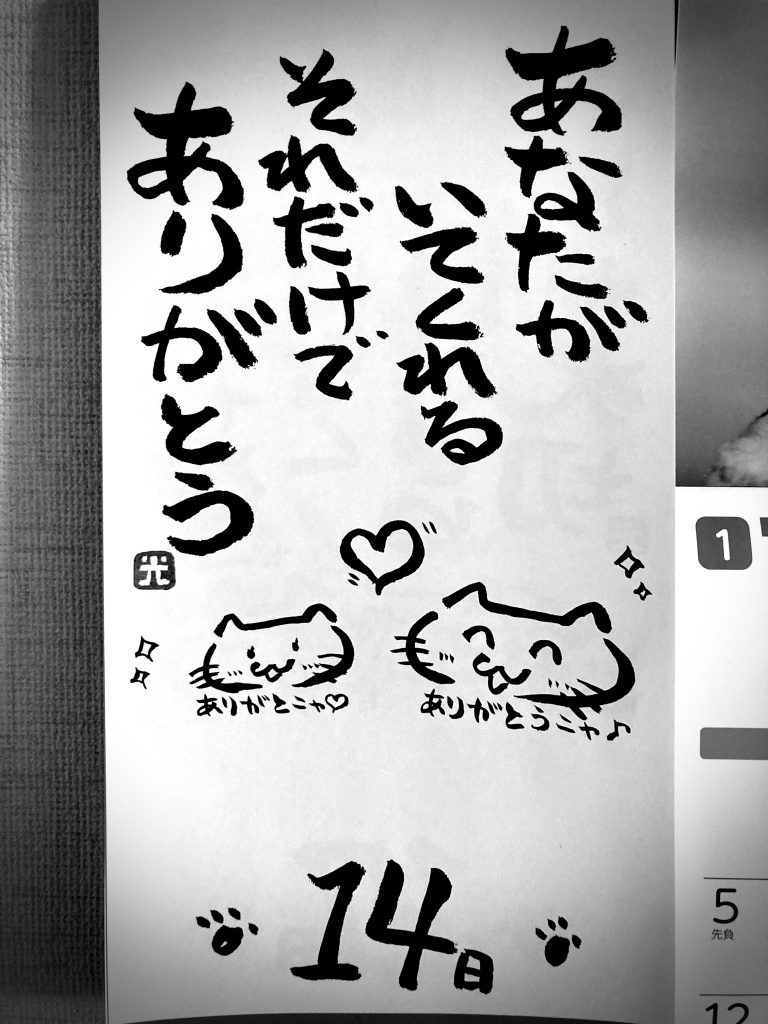 あなたが
いてくれる
それだけで
ありがとう
光
ありがとニャ♡
ありがとうニャ♪
14日
1
5
先負
12